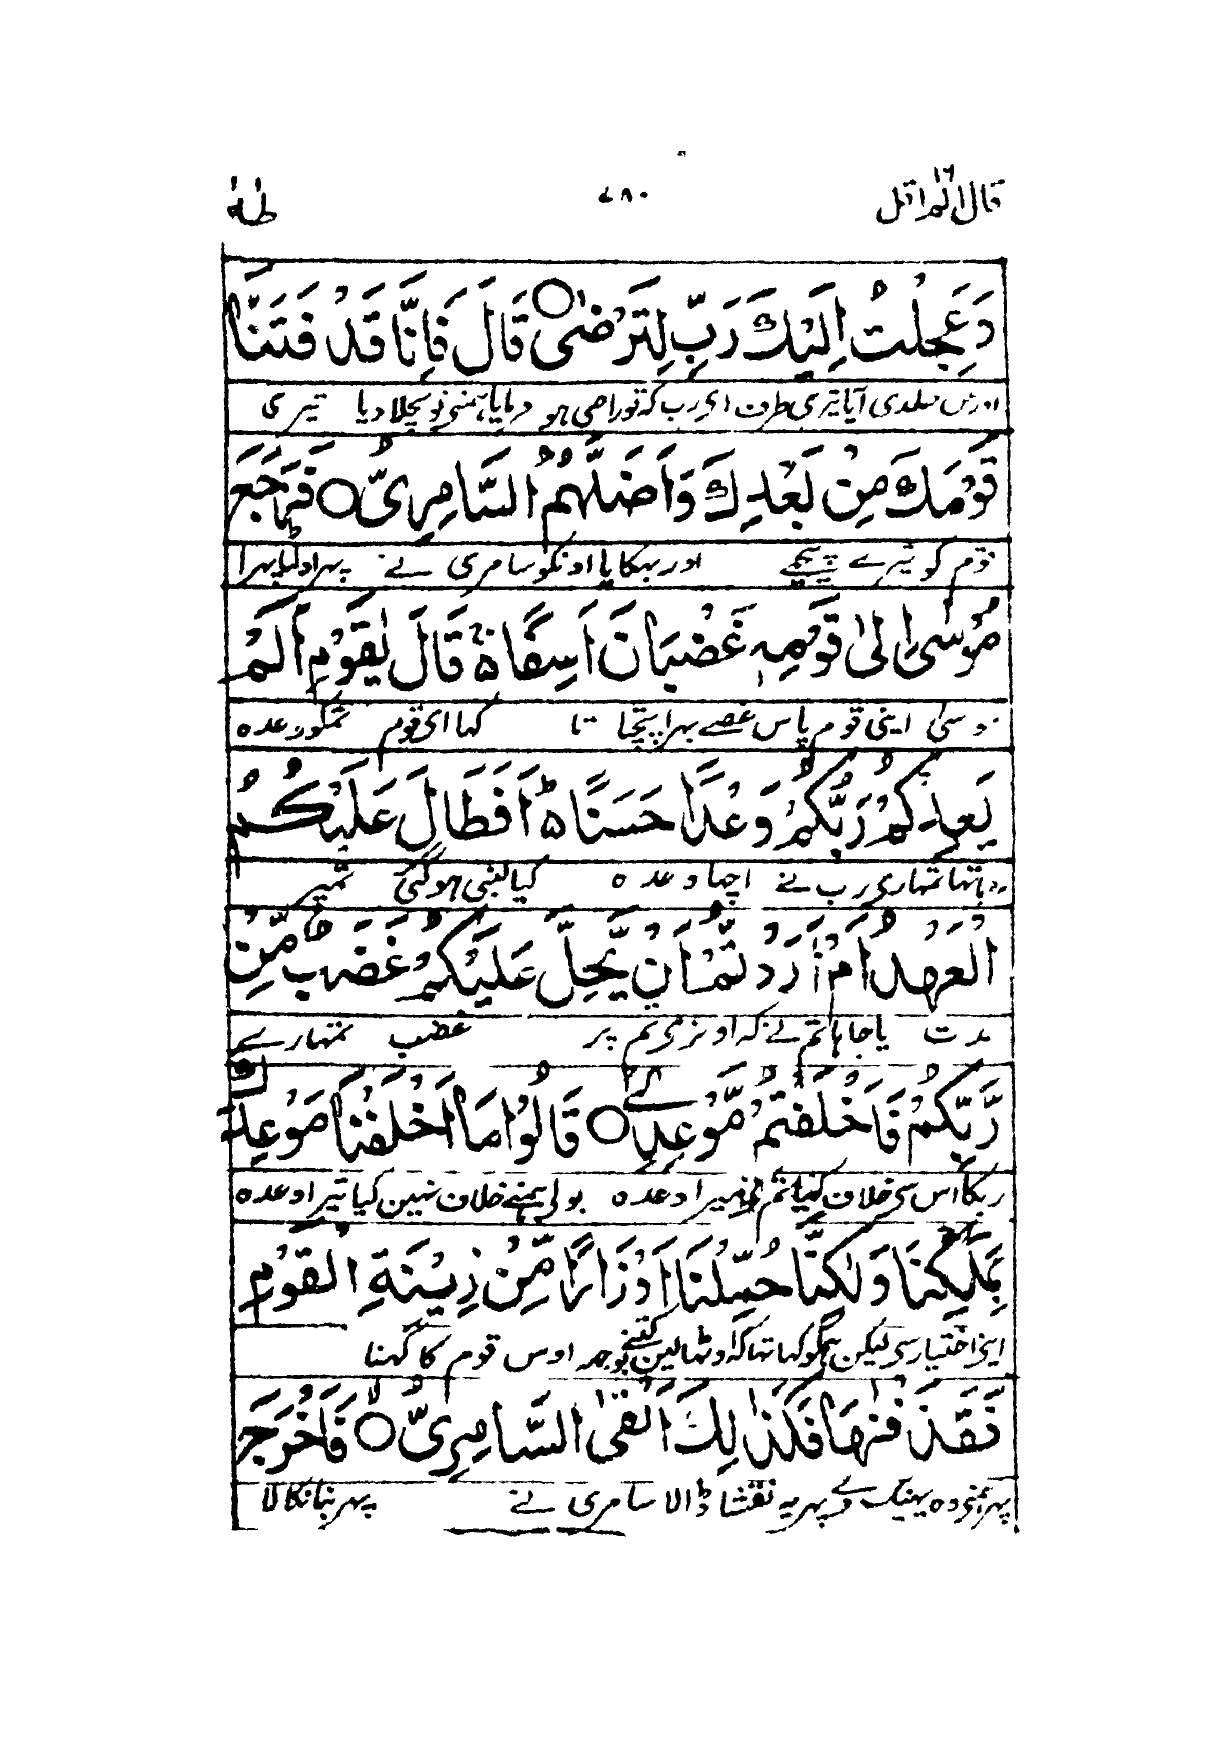 قال الم ١٦ طٰهٰ
٤٨٠
وَعَجِلْتُ اِلَيْكَ رَبِّ لِتَرْضٰى ○ قَالَ فَاِنَّا قَدْ فَتَنَّا
اور میں جلدی آیا تیری طرف ای رب کہ تو راضی ہو فرمایا ہمنی تو بچلا دیا تیری
قَوْمَكَ مِنْ بَعْدِكَ وَاَضَلَّهُمُ السَّامِرِىُّ ○ فَرَجَعَ
قوم کو تیرے پیچھے اور بہکایا اونکو سامری نے پہر اولٹا پہرا
مُوْسٰى اِلٰى قَوْمِهٖ غَضْبَانَ اَسِفًا ۵ قَالَ يٰقَوْمِ اَلَمْ
موسیٰ اپنی قوم پاس غصے بہرا پچتاتا کہا ای قوم تمکو وعدہ
يَعِدْكُمْ رَبُّكُمْ وَعْدًا حَسَنًا ۵ اَفَطَالَ عَلَيْكُمُ
ندیا تہا تمہاری رب نے اچہا وعدہ کیا لنبی ہو گئی تمپر
الْعَهْدُ اَمْ اَرَدْتُّمْ اَنْ يَّحِلَّ عَلَيْكُمْ غَضَبٌ مِّنْ
مدت یا چاہا تم نے کہ اوتری تم پر غضب تمہارے
رَّبِّكُمْ فَاَخْلَفْتُمْ مَّوْعِدِىْ ○ قَالُوْا مَا اَخْلَفْنَا مَوْعِدَكَ
ربکا اس سی خلاف کیا تم نی میرا وعدہ بولی ہمنے خلاف نہین کیا تیرا وعدہ
بِمَلْكِنَا وَلٰكِنَّا حُمِّلْنَا اَوْزَارًا مِّنْ زِيْنَةِ الْقَوْمِ
اپنی اختیار سی لیکن ہمکو کہا تہا کہ اوٹہا لین کتنے بوجھ اوس قوم کا گہنا
فَقَذَفْنٰهَا فَكَذٰلِكَ اَلْقَى السَّامِرِىُّ ○ فَاَخْرَجَ
پہر ہمنی وہ پہینک دیے پہر یہ نقشا ڈالا سامری نے پہر بنا نکالا